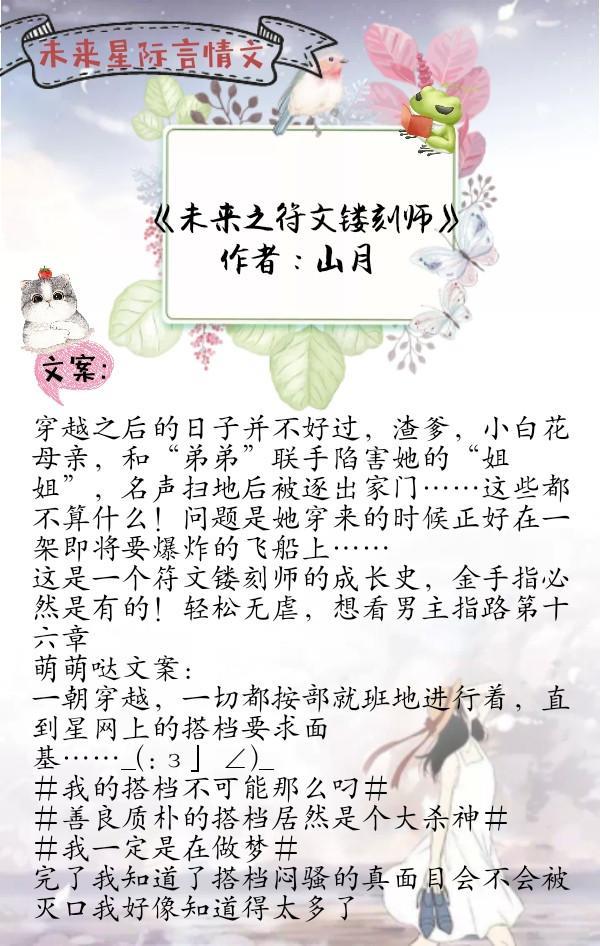 未来星际言情文
《未来之符文镂刻师》
作者：山月
文案：
穿越之后的日子并不好过，渣爹，小白花
母亲，和“弟弟”联手陷害她的“姐
姐”，名声扫地后被逐出家门……这些都
不算什么！问题是她穿来的时候正好在一
架即将要爆炸的飞船上……
这是一个符文镂刻师的成长史，金手指必
然是有的！轻松无虐，想看男主指路第十
六章
萌萌哒文案：
一朝穿越，一切都按部就班地进行着，直
到星网上的搭档要求面
基……_(:з」∠)_
#我的搭档不可能那么叼#
#善良质朴的搭档居然是个大杀神#
#我一定是在做梦#
完了我知道了搭档闷骚的真面目会不会被
灭口我好像知道得太多了